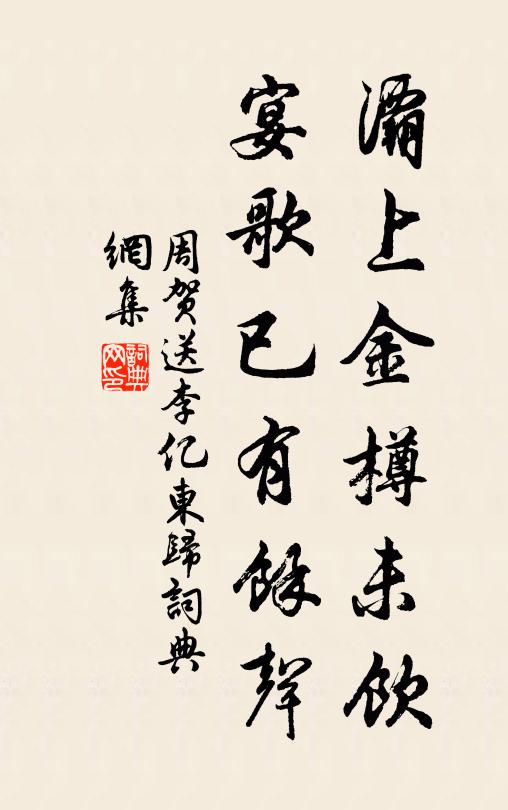 灞上金樽未飲
宴歌已有餘聲
周賀送李亿東歸詞典
網集
詞典網印